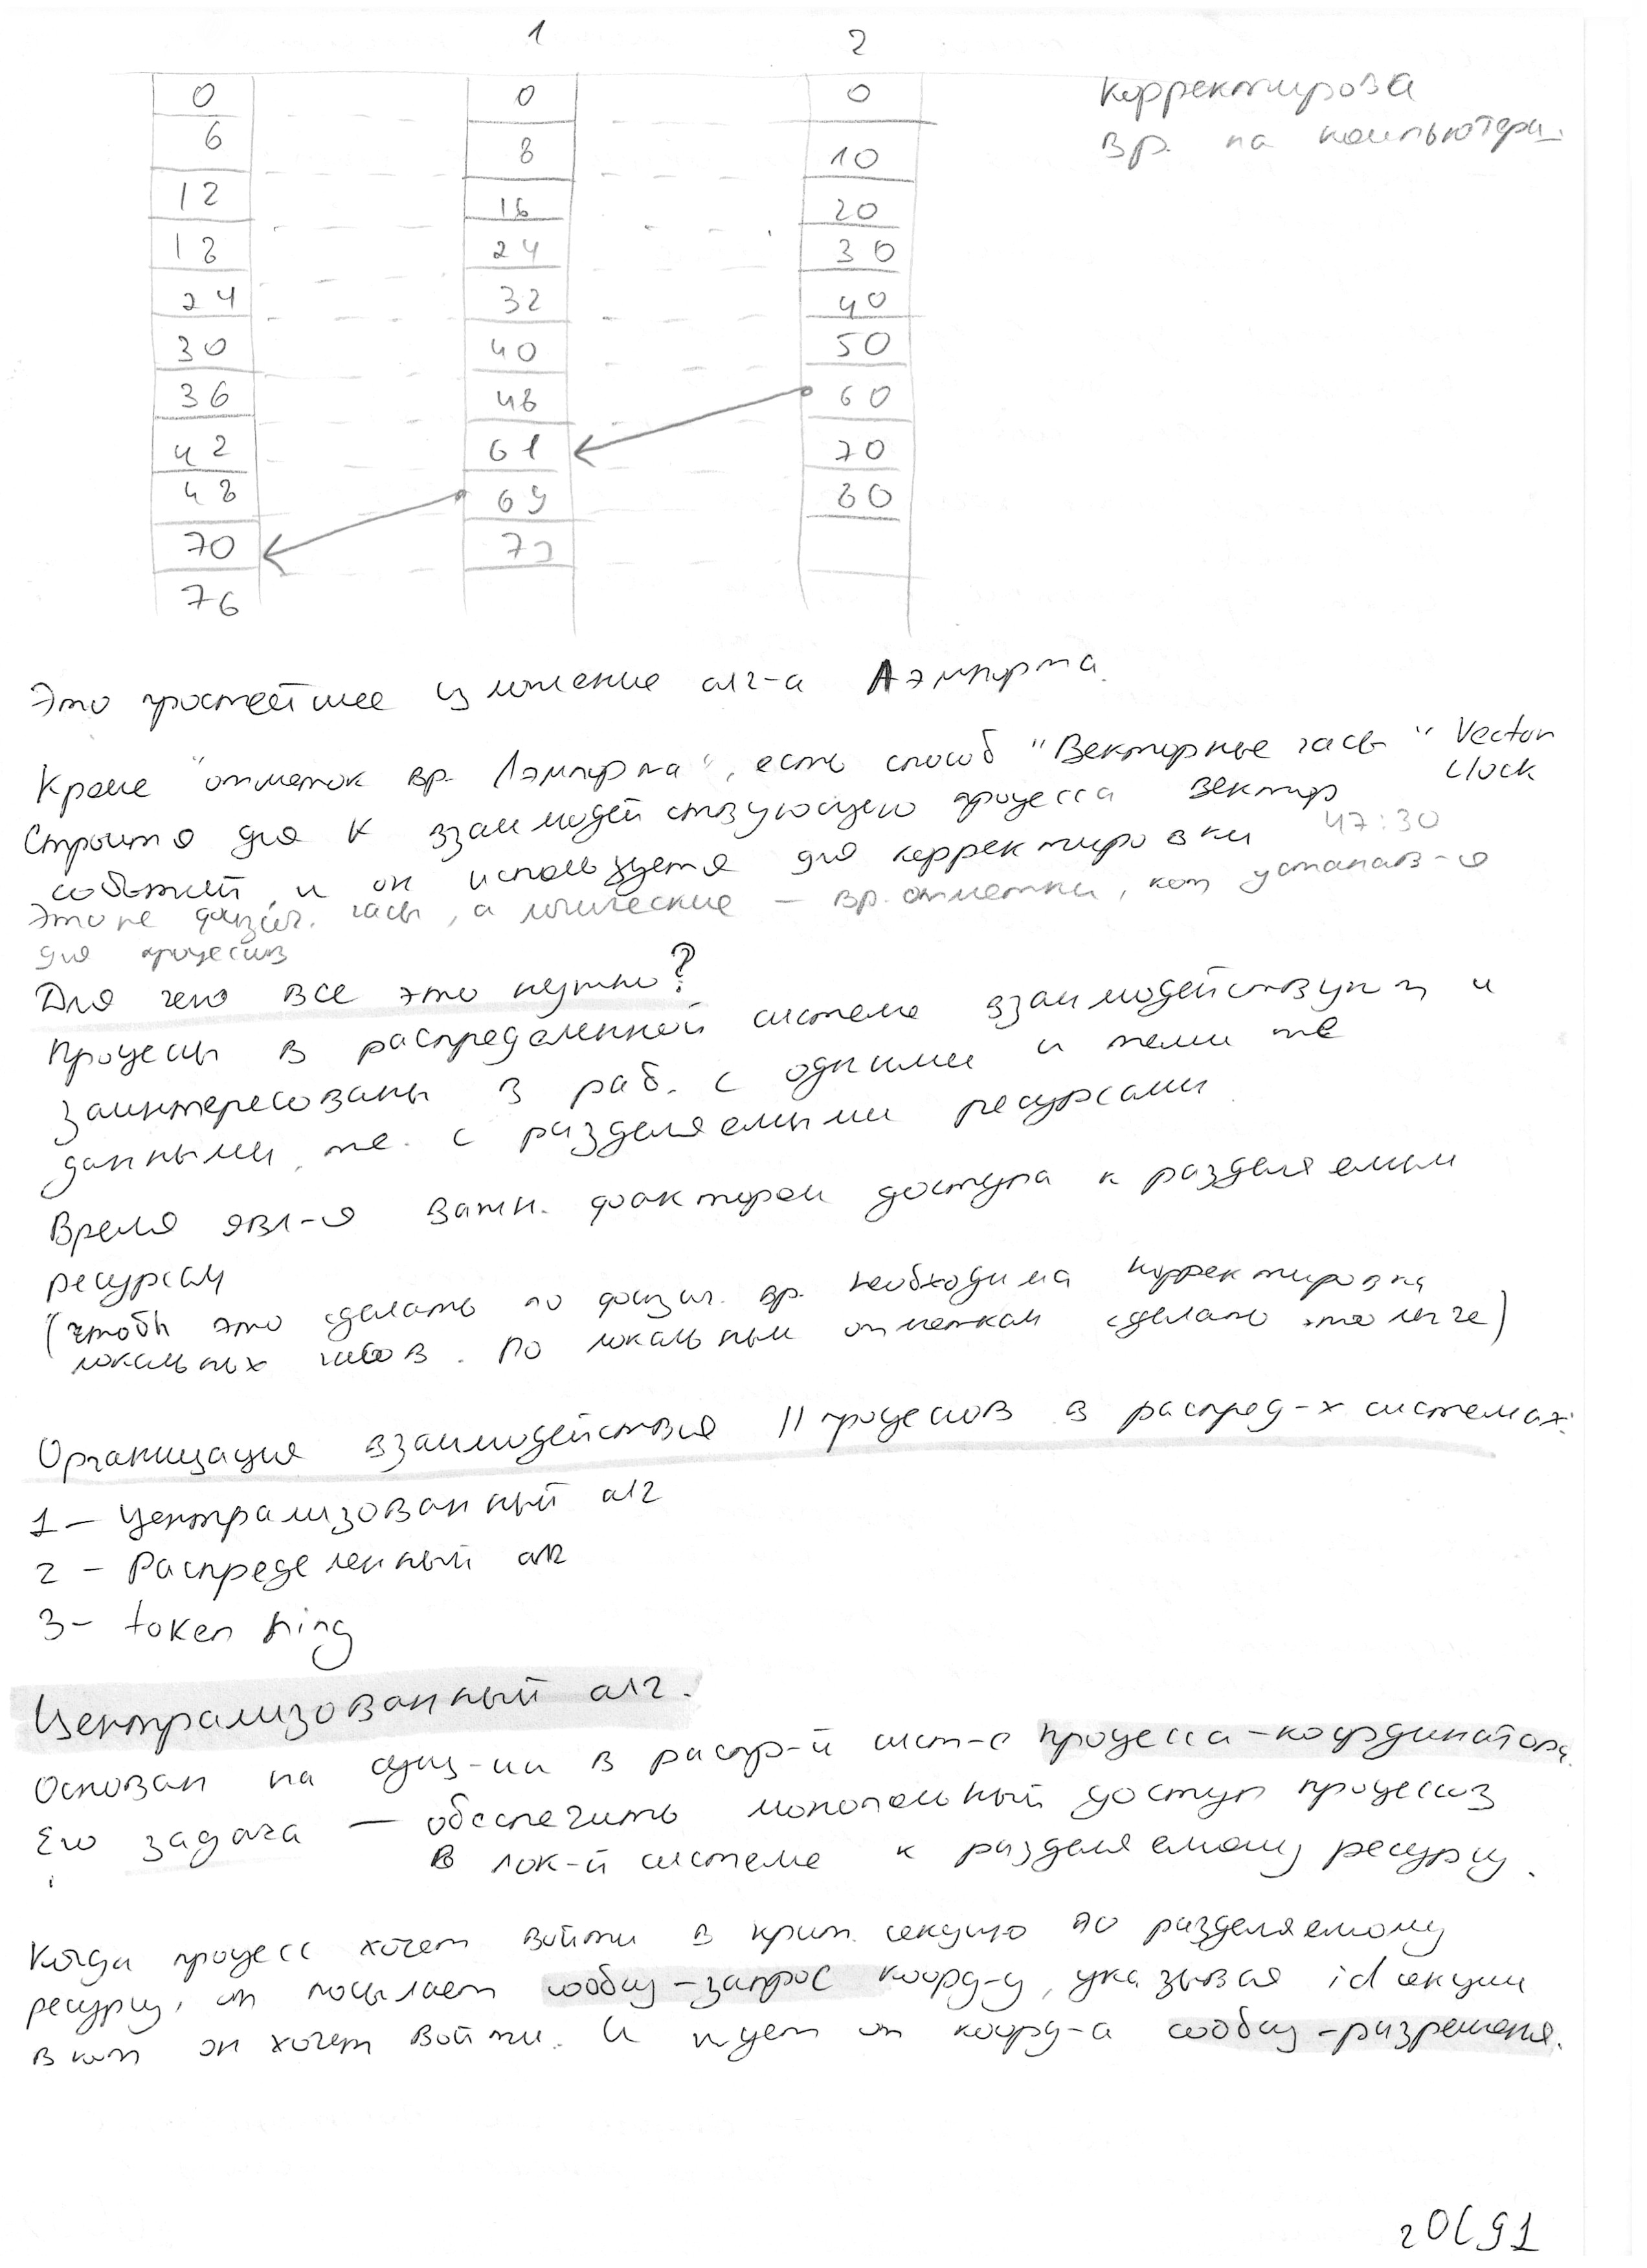 1 2
0 0 0
6 8 10
12 16 20
18 24 30
24 32 40
30 40 50
36 48 60
42 61 70
48 69 80
70 77
76
Корректирова
вр. на компьютерах
Это простейшее изложение алг-а Лэмпорта.
Кроме "отметок вр. Лэмпорта", есть способ "Векторные часы" Vector clock
Строится для К взаимодействующего процесса вектор
событий, и он используется для корректировки 47:30
Это не физич. часы, а логические – вр. отметки, кот устанав-я
для процессов
Для чего все это нужно?
Процессы в распределенной системе взаимодействуют и
заинтересованы в раб. с одними и теми же
данными, т.е. с разделяемыми ресурсами.
Время явл-я важн. фактором доступа к разделяемым
ресурсам
(чтобы это сделать по физич. вр. необходима корректировка
локальных часов. По локальным отметкам сделать это легче)
Организация взаимодействия || процессов в распред-х системах:
1 – Централизованный алг
2 – Распределенный алг
3 – token ring
Централизованный алг.
Основан на сущ-ии в распр-й сист-е процесса-координатора.
Его задача – обеспечить монопольный доступ процессов
в лок-й системе к разделяемому ресурсу.
Когда процесс хочет войти в крит. секцию по разделяемому
ресурсу, он посылает сообщ-запрос коорд-у, указывая id секции
в кот он хочет войти. И ждет от коорд-а сообщ-разрешения.